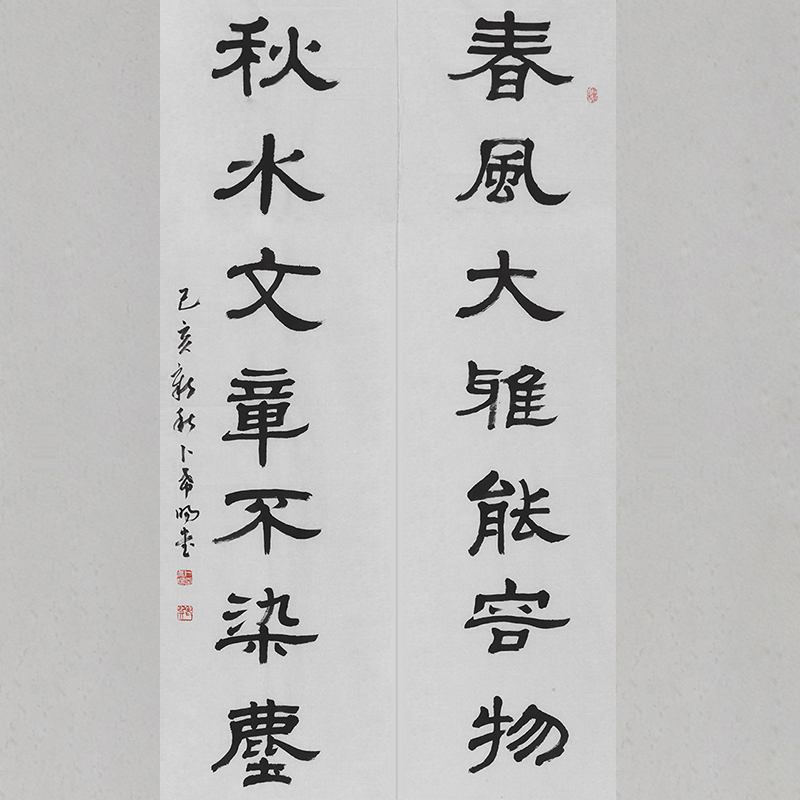 春風大雅能容物
秋水文章不染塵
己亥新秋卜希暘書